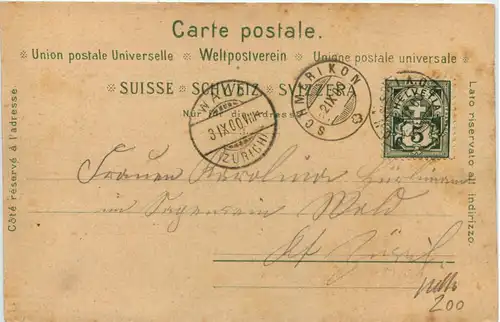 Carte postale.
Union postale Universelle Weltpostverein Unione postale universale
SUISSE SCHWEIZ SVIZZERA
Nur für die Adresse
Côté réservé à l'adresse.
Lato riservato all' indirizzo.
WALD
3.IX.00.VII
(ZÜRICH)
SCHMERIKON
2.IX.00
HELVETIA
5
Frauen Karolina
in Wald
Kt Zürich.
200